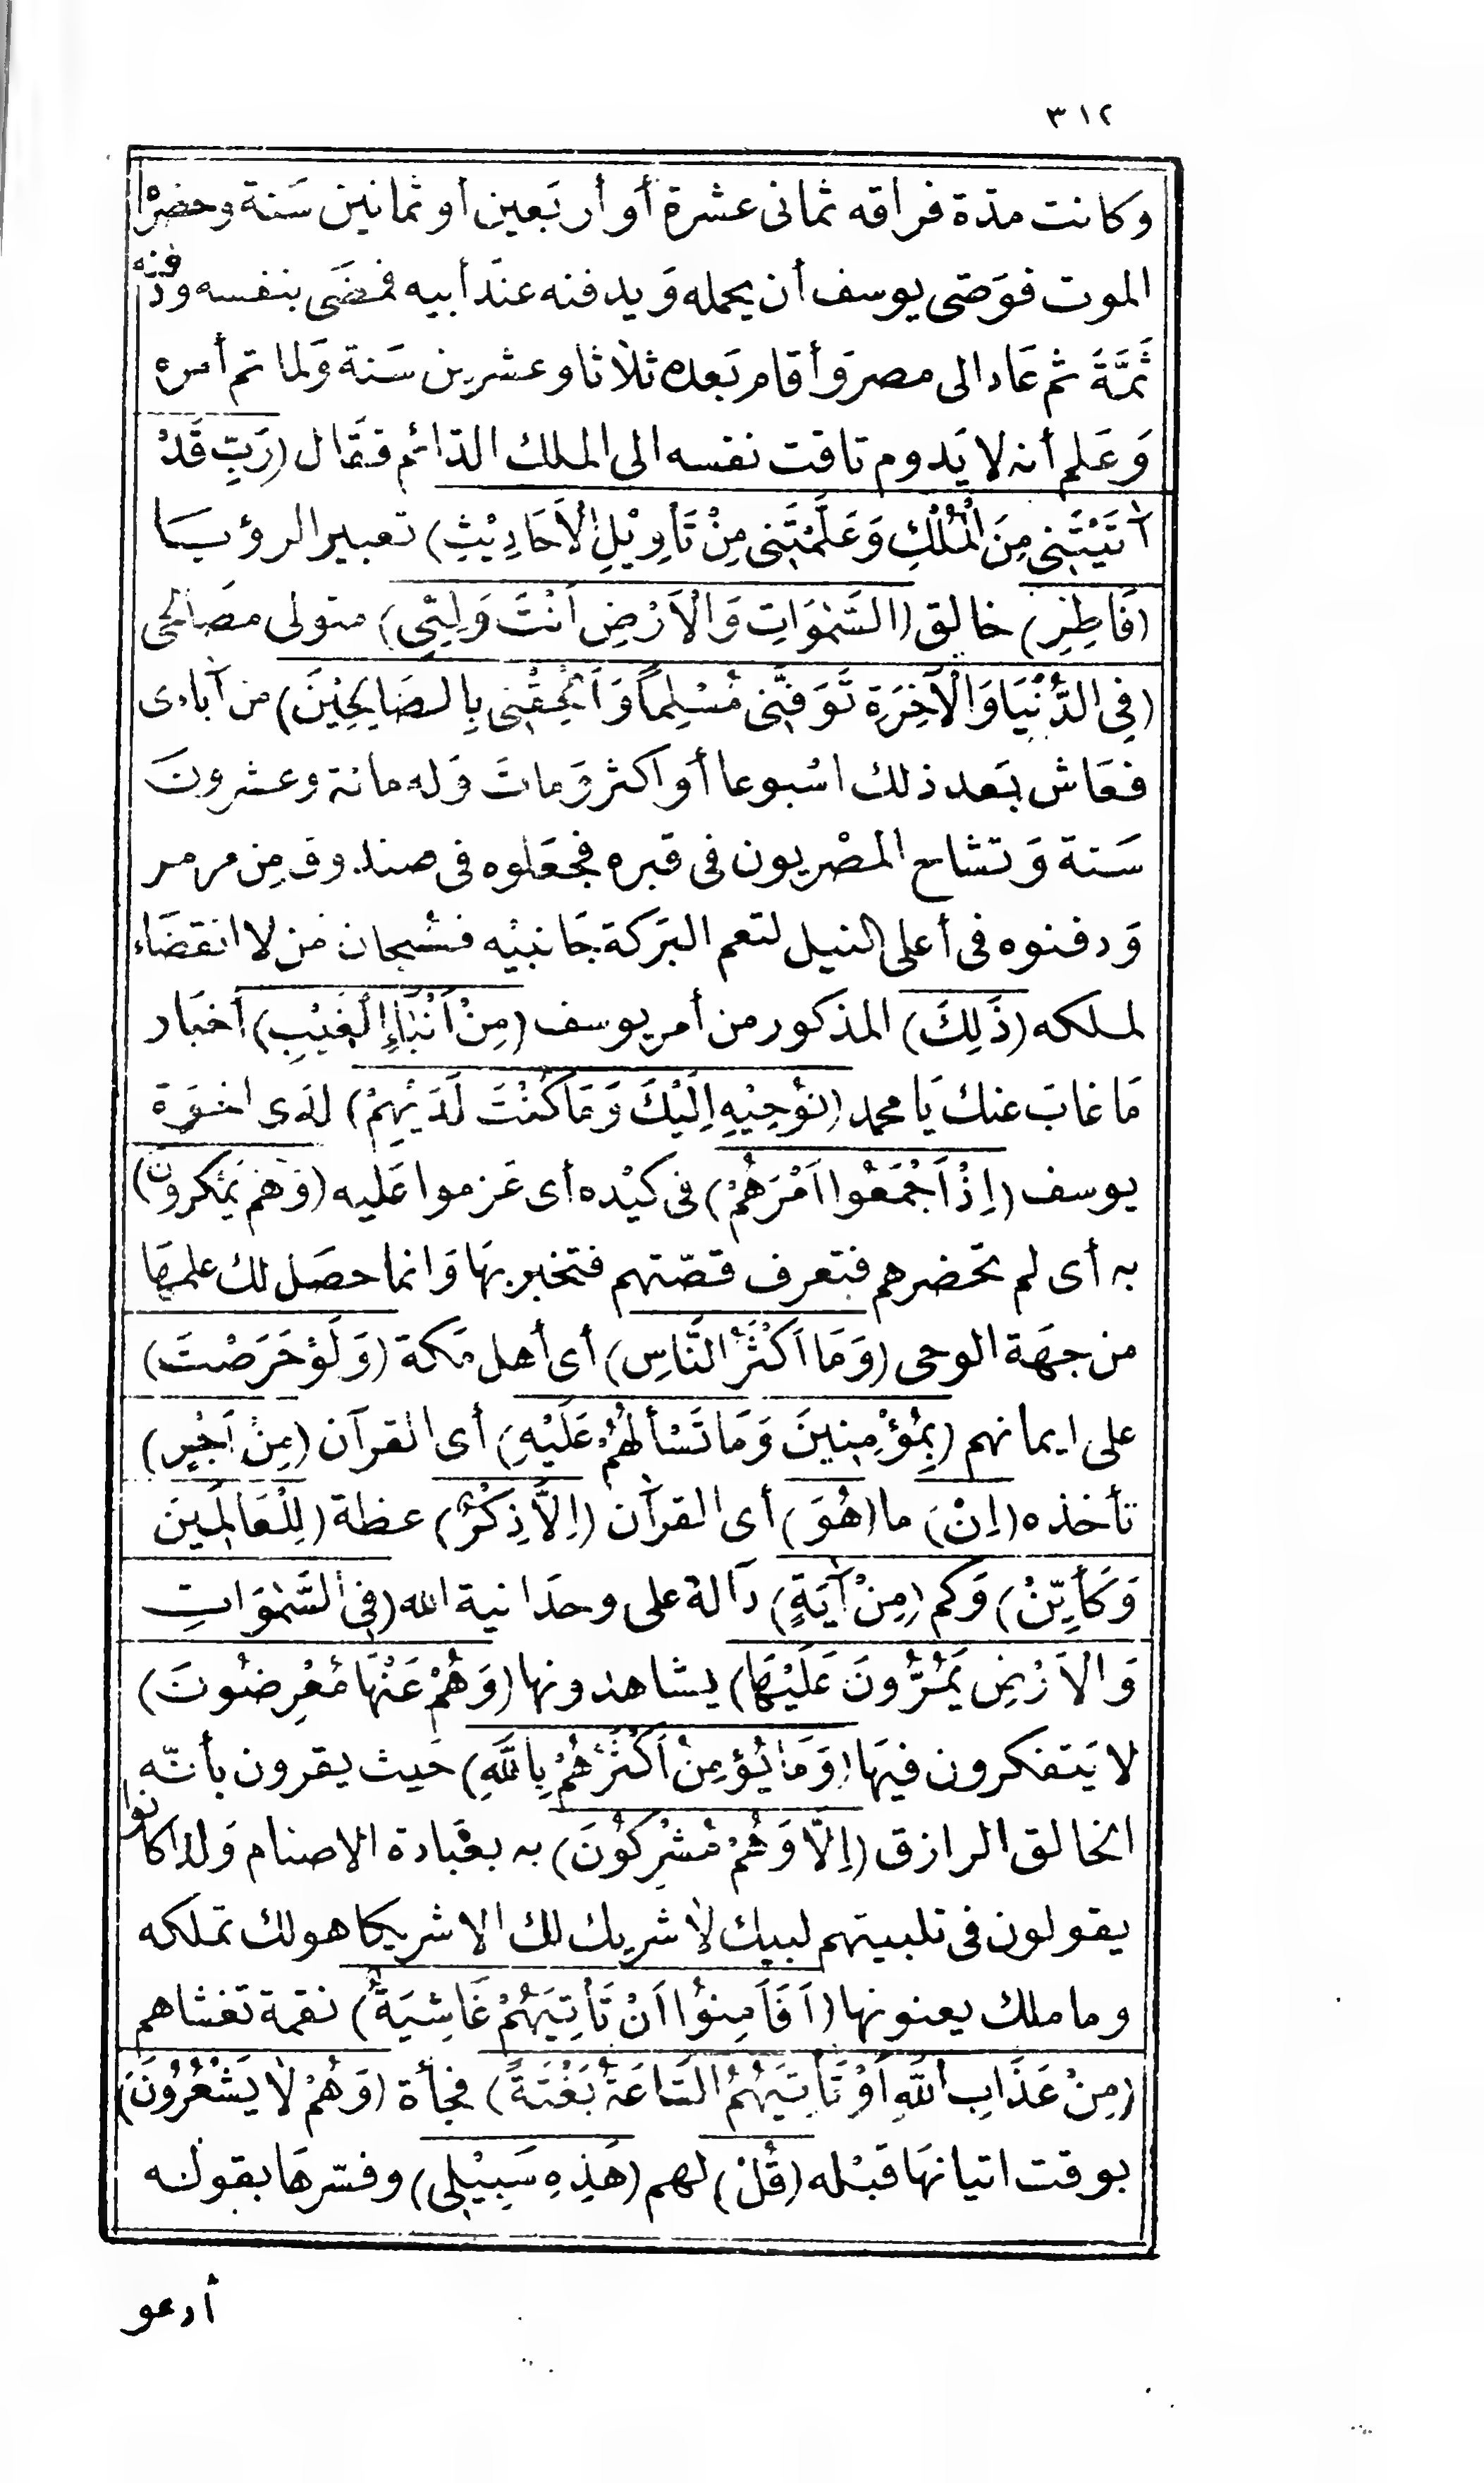 ٣١٢
وكانت مدّة فراقه ثمانى عشرة أو أربَعين أو ثمانين سَنة وحضره
الموت فوَصّى يوسف أن يحمله وَيدفنه عندَ أبيه فمضَى بنفسه ودفنه
ثَمَّةَ ثم عَاد الى مصر وَأقام بَعده ثلاثا وعشرين سَنة وَلما تم أمره
وَعَلم أنه لا يَدوم تاقت نفسه الى الملك الدّائم فقَال (رَبِّ قَدْ
آتَيْتَنِى مِنَ الْمُلْكِ وَعَلَّمْتَنِى مِنْ تَأوِيْلِ الْاَحَادِيْثِ) تعبير الرؤيَا
(فَاطِرِ) خالق (السَّمٰوَاتِ وَالْاَرْضِ اَنْتَ وَلِيّىِ) متولى مصَالحى
(فِى الدُّنْيَا وَالْآخِرَةِ تَوَفَّنِى مُسْلِماً وَاَلْحِقْنِى بِالصَالِحِيْنَ) من آباءى
فعَاش بَعد ذلك اسْبوعا أو اكثر وَماتَ وَله مائة وعشرونَ
سَنة وَتشاح المصْريون فى قبره فجعَلوه فى صندوق مِن مرمر
وَدفنوه فى أعلى النيل لتعم البَركة جَانبيْه فسُبحان مَن لا انقضَاء
لملكه (ذَلِكَ) المذكور من أمر يوسف (مِنْ اَنْبَاءِ الْغَيْبِ) أخبَار
مَا غابَ عنك يَا محمد (نُوْحِيْهِ اِلَيْكَ وَمَا كُنْتَ لَدَيْهِمْ) لدَى اخوَة
يوسف (اِذْ اَجْمَعُوا اَمْرَهُمْ) فى كيْده أى عَزموا عَليه (وَهُم يَمْكرونَ)
به أى لم تحَضرهم فتعرف قصّتهم فتخبر بهَا وَانما حصَل لك علمهَا
من جهَة الوحى (وَمَا اَكْثَرُ النَّاسِ) أى أهل مَكة (وَلَوْ حَرَصْتَ)
على ايمانهم (بِمُؤْمِنِينَ وَمَا تَسْألُهُمْ عَلَيْهِ) أى القرآن (مِنْ اَجْرٍ)
تأخذه (اِنْ) ما (هُوَ) أى القرآن (اِلَّا ذِكْرٌ) عظة (لِلْعَالَمِينَ
وَكَأيِّنْ) وَكم (مِنْ آيَةٍ) دَالة على وحدَانية الله (فِى السَّمٰوَاتِ
وَالاَرْضِ يَمُرُّونَ عَلَيْهَا) يشاهدونها (وَهُمْ عَنْهَا مُعْرِضُونَ)
لا يَتفكرون فيهَا (وَمَا يُؤمِنُ اَكْثَرُهُمْ بِاللَّهِ) حَيث يقرون بأنّه
الخالق الرازق (اِلَّا وَهُمْ مُشْرِكُونَ) به بعبَادة الاصنام وَلذا كانوا
يقولون فى تلبيتهم لبيك لا شريك لك الا شريكا هولك تملكه
وما ملك يعنونها (اَفَاَمِنُوا اَنْ تَأتِيَهُمْ غَاشِيَةٌ) نقمة تغشاهم
(مِنْ عَذَابِ اللَّهِ اَوْ تَأتِيَهُمُ السَّاعَةُ بَغْتَةً) فجأة (وَهُمْ لَا يَشْعُرُونَ)
بوقت اتيانهَا قبْله (قُلْ) لهم (هَذِهِ سَبِيْلِى) وفسّرهَا بقوله
أدعو